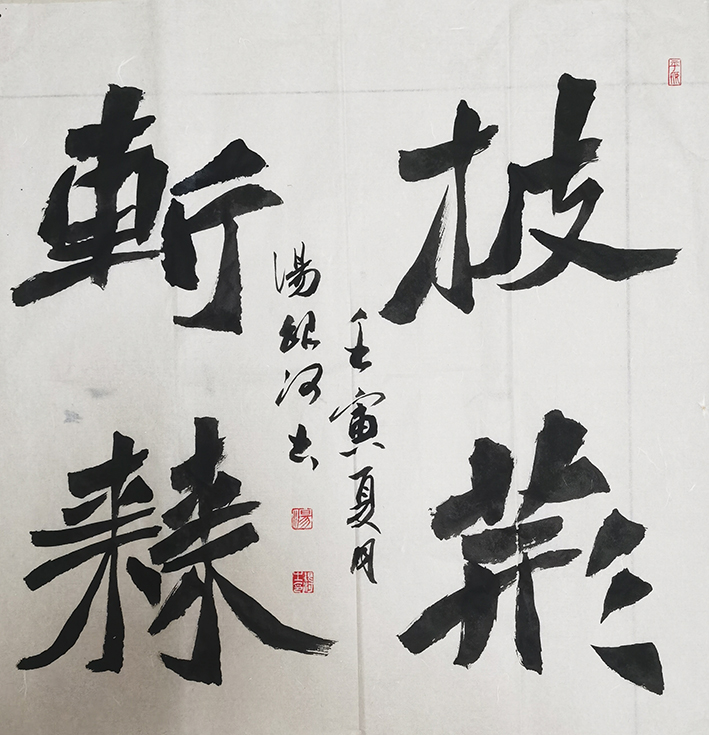 披荊
斬棘
壬寅夏月
湯銀河书
湯